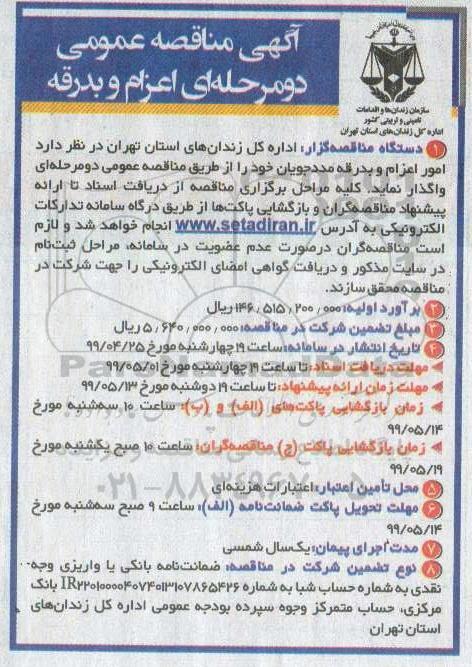 آگهی مناقصه عمومی
دومرحله‌ای اعزام و بدرقه
سازمان زندان‌ها و اقدامات
تامینی و تربیتی کشور
اداره کل زندان‌های استان تهران
۱ دستگاه مناقصه‌گزار: اداره کل زندان‌های استان تهران در نظر دارد
امور اعزام و بدرقه مددجویان خود را از طریق مناقصه عمومی دومرحله‌ای
واگذار نماید. کلیه مراحل برگزاری مناقصه از دریافت اسناد تا ارائه
پیشنهاد مناقصه‌گران و بازگشایی پاکت‌ها از طریق درگاه سامانه تدارکات
الکترونیکی به آدرس www.setadiran.ir انجام خواهد شد و لازم
است مناقصه‌گران درصورت عدم عضویت در سامانه، مراحل ثبت‌نام
در سایت مذکور و دریافت گواهی امضای الکترونیکی را جهت شرکت در
مناقصه محقق سازند.
۲ برآورد اولیه: ۱۴۶٫۵۱۵٫۲۰۰٫۰۰۰ ریال
۳ مبلغ تضمین شرکت در مناقصه: ۵٫۶۴۰٫۰۰۰٫۰۰۰ ریال
۴ تاریخ انتشار در سامانه: ساعت ۱۹ چهارشنبه مورخ ۹۹/۰۴/۲۵
مهلت دریافت اسناد: تا ساعت ۱۹ چهارشنبه مورخ ۹۹/۰۵/۰۱
مهلت زمان ارائه پیشنهاد: تا ساعت ۱۹ دوشنبه مورخ ۹۹/۰۵/۱۳
زمان بازگشایی پاکت‌های (الف) و (ب): ساعت ۱۰ سه‌شنبه مورخ
۹۹/۰۵/۱۴
زمان بازگشایی پاکت (ج) مناقصه‌گران: ساعت ۱۰ صبح یکشنبه مورخ
۹۹/۰۵/۱۹
۰۲۱-۸۸۳۴۹۶۷۰-۵
۵ محل تأمین اعتبار: اعتبارات هزینه‌ای
۶ مهلت تحویل پاکت ضمانت‌نامه (الف): ساعت ۹ صبح سه‌شنبه مورخ
۹۹/۰۵/۱۴
۷ مدت اجرای پیمان: یک‌سال شمسی
۸ نوع تضمین شرکت در مناقصه: ضمانت‌نامه بانکی یا واریزی وجه
نقدی به شماره حساب شبا به شماره IR۲۲۰۱۰۰۰۰۴۰۷۴۰۱۳۱۰۷۸۶۵۴۲۶ بانک
مرکزی، حساب متمرکز وجوه سپرده بودجه عمومی اداره کل زندان‌های
استان تهران